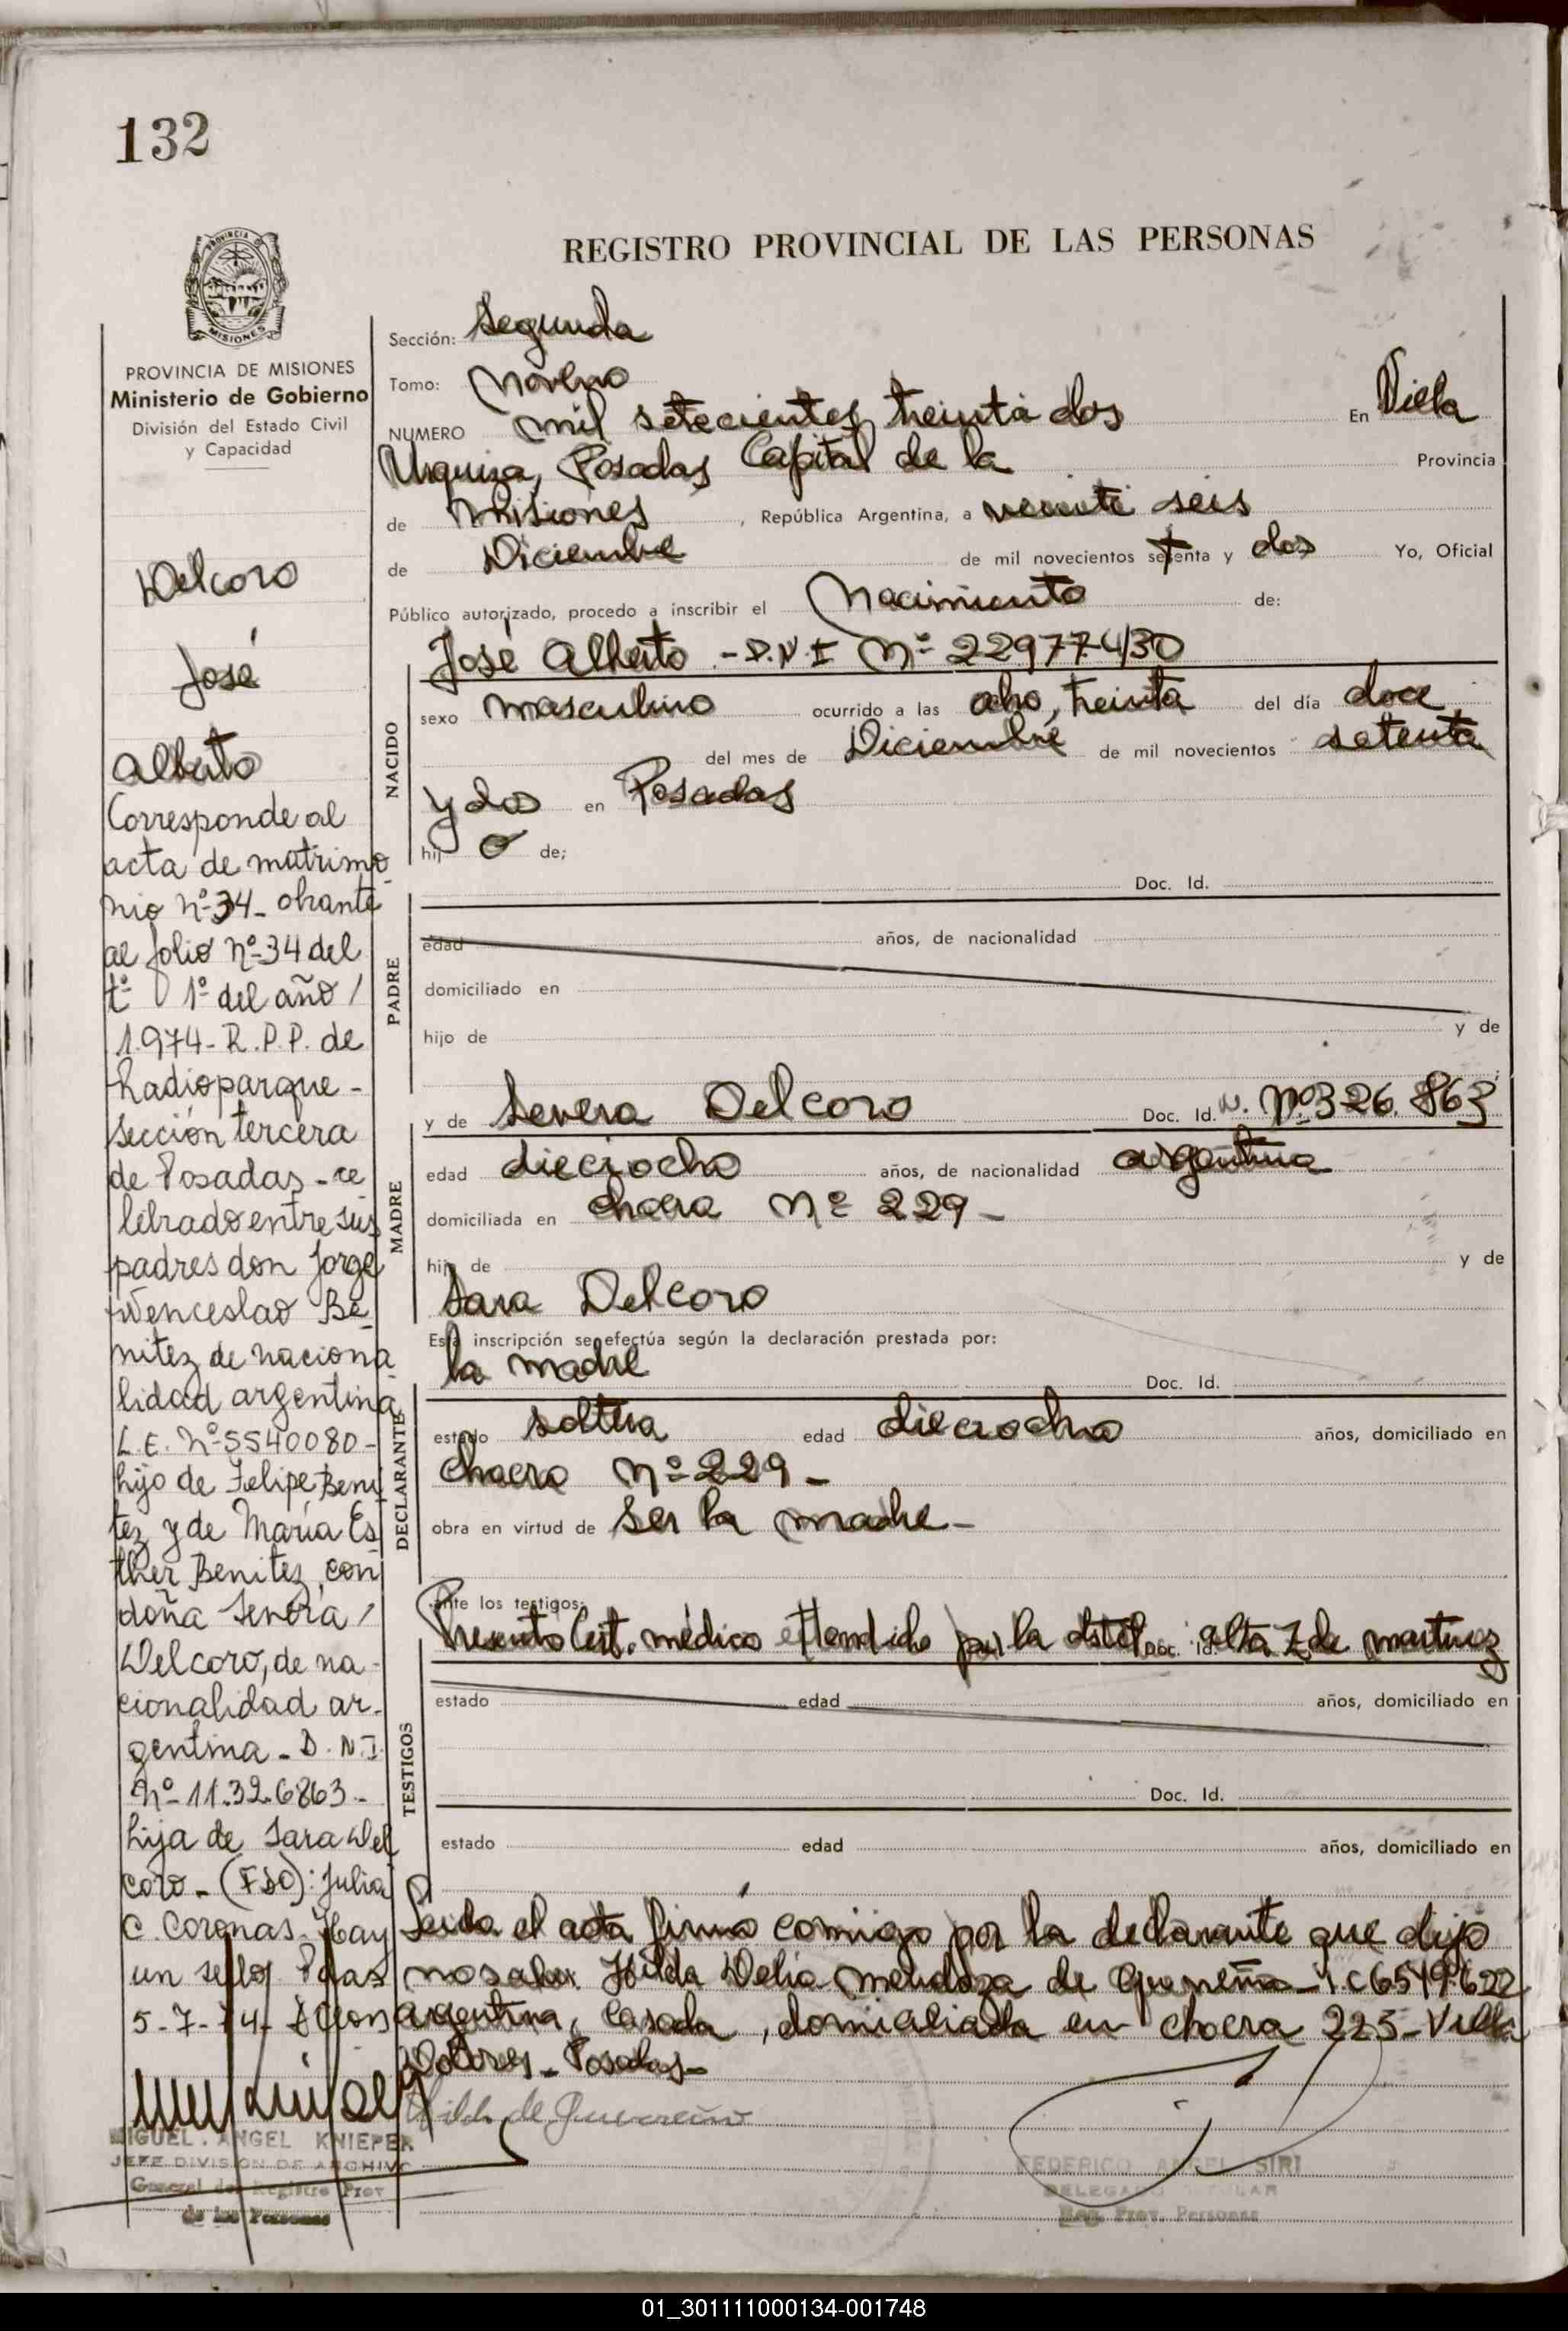 132
REGISTRO PROVINCIAL DE LAS PERSONAS
PROVINCIA DE MISIONES
Ministerio de Gobierno
División del Estado Civil
y Capacidad
Delcoro
José
Alberto
Corresponde al
acta de matrimo-
nio nº 34 - obrante
al folio nº 34 del
tº 1º del año /
1.974 - R.P.P. de
Radioparque -
sección tercera
de Posadas - ce
lebrado entre sus
padres don Jorge
Wenceslao Be-
nitez de naciona-
lidad argentina
L.E. Nº 5540080 -
hijo de Felipe Beni
tez y de María Es
ther Benitez, con
doña Severa /
Delcoro, de na-
cionalidad ar-
gentina - D.N.I.
Nº 11.326863 -
hija de Sara Del
coro - (FDO): Julia
C. Coronas. Hay
un sello Pdas
5-7-74-
MIGUEL ANGEL KNIEPER
JEFE DIVISION DE ARCHIVO
General del Registro Prov
de las Personas
Sección: Segunda
Tomo: Noveno
NUMERO mil setecientos treinta dos En Villa
Urquiza, Posadas Capital de la Provincia
de Misiones, República Argentina, a veinte seis
de Diciembre de mil novecientos setenta y dos Yo, Oficial
Público autorizado, procedo a inscribir el Nacimiento de:
José Alberto - D.N.I Nº 22977430
NACIDO
sexo masculino ocurrido a las ocho, treinta del día doce
del mes de Diciembre de mil novecientos setenta
y dos en Posadas
hijo de;
Doc. Id.
PADRE
edad años, de nacionalidad
domiciliado en
hijo de y de
y de Severa Delcoro Doc. Id. N. Nº 326.863
MADRE
edad dieciocho años, de nacionalidad argentina
domiciliada en chacra Nº 229 -
hija de y de
Sara Delcoro
Esta inscripción se efectúa según la declaración prestada por:
la madre Doc. Id.
DECLARANTE
estado soltera edad dieciocho años, domiciliado en
chacra Nº 229 -
obra en virtud de ser la madre -
Ante los testigos:
Presento Cert. médico extendido por la obstet. Doc. Id. Z de Martinez
TESTIGOS
estado edad años, domiciliado en
Doc. Id.
estado edad años, domiciliado en
Leida el acta firmó conmigo por la declarante que dijo
no saber Hilda Delia Mendoza de - C 6549.622
argentina, casada, domiciliada en chacra 225 - Villa
Dolores - Posadas -
Hilda de
FEDERICO ANGEL SIRI
DELEGADO TITULAR
Reg. Prov. Personas
01_301111000134-001748